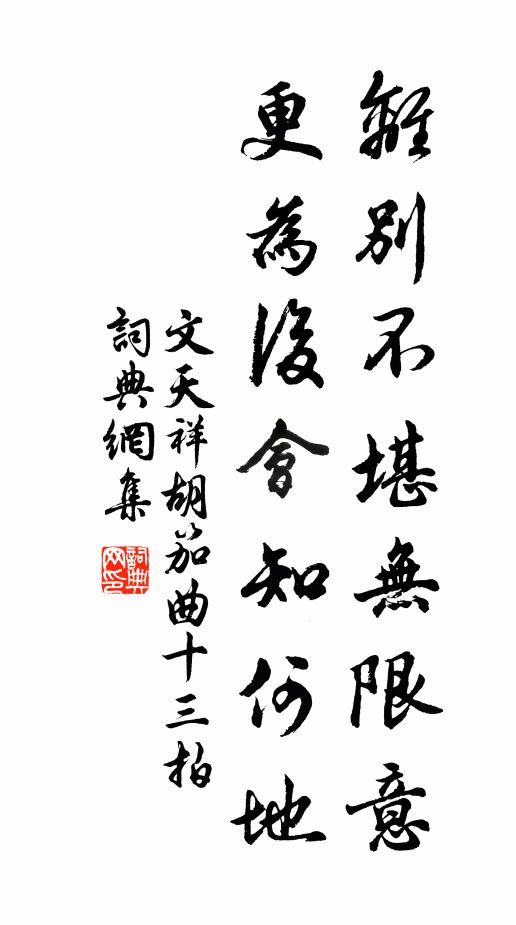 離別不堪無限意
更為後會知何地
文天祥胡笳曲十三拍
詞典網集
詞典網印